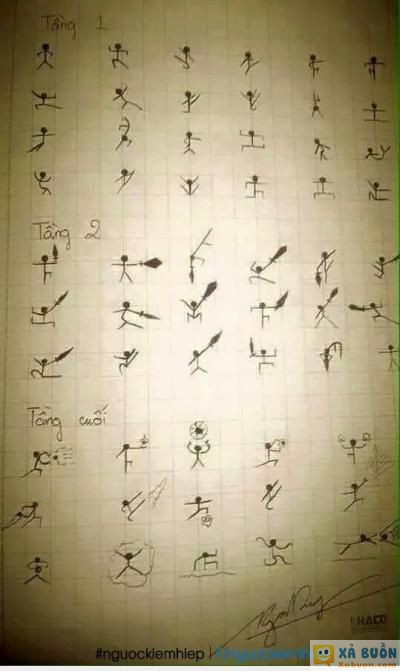 Tầng 1
Tầng 2
Tầng cuối
HACO
#nguockiemhiep |
XẢ BUỒN
Xabuon.com